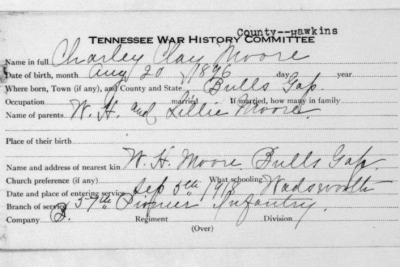 County--Hawkins
TENNESSEE WAR HISTORY COMMITTEE
Name in full Charley Clay Moore
Date of birth, month Aug 20 1896 day year
Where born, Town (if any), and County and State Bulls Gap
Occupation married If married, how many in family
Name of parents W. H. and Lillie Moore
Place of their birth
Name and address of nearest kin W. H. Moore Bulls Gap
Church preference (if any) What schooling Wadsworth
Date and place of entering service Sep 5th 1918
Branch of service 57th Pioneer Infantry
Company B. Regiment Division
(Over)